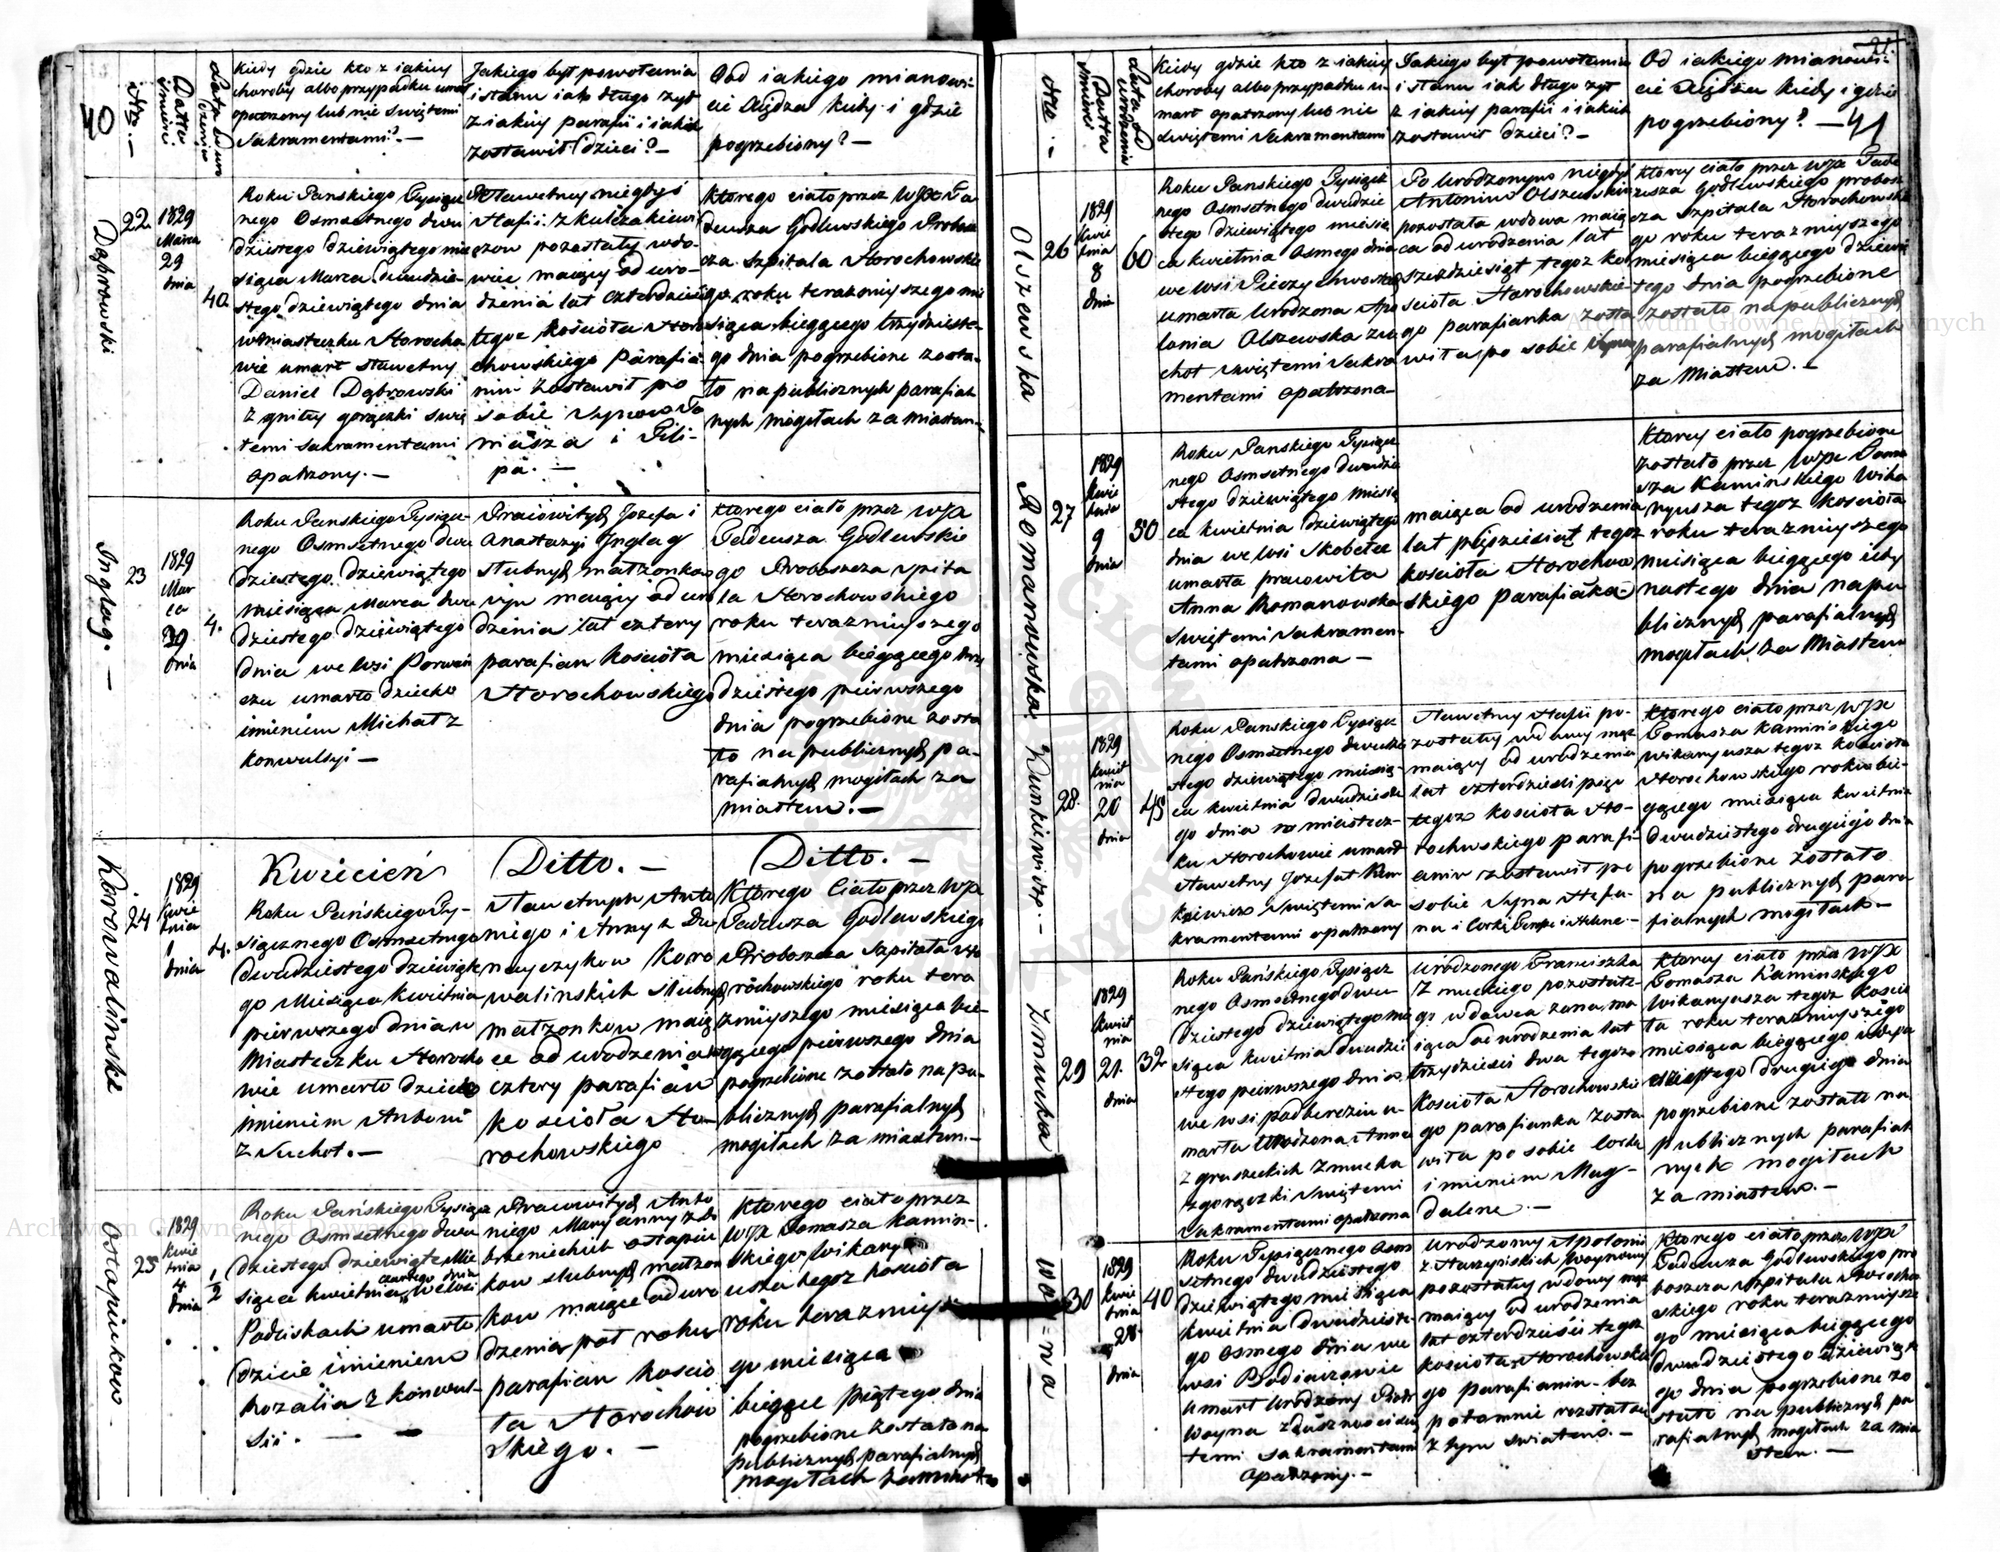 40
Nro. —
Datta śmierci
Lata urodzenia
Kiedy gdzie kto z iakiey
choroby albo przypadku umarł
opatrzony lub nie Swiętemi
Sakramentami? —
Jakiego był powołania
i stanu iak długo żył
z iakiey parafii i iakich
zostawił dzieci? —
Ood iakiego mianowi-
cie Xiędza kiedy i gdzie
pogrzebiony? —
Dąprowski
22.
1829
Marca
29
dnia
40.
Roku Panskiego Tysiącz
nego Osmsetnego dwu
dziestego dziewiątego mie
siąca Marca Dwudzie-
stego dziewiątego dnia
w miasteczku Horocho
wie umarł sławetny
Daniel Dąbrowski
z gniłey gorączki Swię
temi Sakramentami
opatrzony. —
Sławetney niegdyś
pozostały wdo-
wiec maiący od uro-
dzenia lat czterdzieści
tegoż kościoła Horo
chowskiego Parafia
nin zostawił po
sobie Synow To
masza i Fili-
pa. —
Ktorego ciało przez WJX Ta
deusza Godlewskiego Probosz
cza Szpitala Horochowskie
go roku teraznieyszego mie
siąca bieżącego trzydzieste-
go dnia pogrzebione zosta-
ło na publicznych parafial
nych mogiłach za miastem.
Inglag. —
23
1829
Mar
ca
29
dnia
4.
Roku Panskiego Tysiącz-
nego Osmsetnego dwu
dziestego dziewiątego
miesiąca Marca dwu
dziestego dziewiątego
dnia we wsi
umarło dziecko
imieniem Michał z
konwulsyi —
Pracowitych Jozefa i
Anastazyi Inglag
slubnych małzonkow
syn maiący od uro
dzenia lat cztery
parafian kościoła
Horochowskiego
Ktorego ciało przez WJX
Tadeusza Godlewskie
go Proboszcza Szpita
la Horochowskiego
roku teraznieyszego
miesiąca bieżącego trzy
dziestego pierwszego
dnia pogrzebione zosta
ło na publicznych pa-
rafialnych mogiłach za
miastem. —
Kwiecień Ditto. — Ditto. —
Korowalinski
24
1829
Kwie
tnia
1
dnia
4.
Roku Pańskiego Ty-
siącznego Osmsetnego
dwudziestego dziewiąte
go Miesiąca Kwietnia
pierwszego dnia w
Miasteczku Horocho
wie umarło dziecko
imieniem Antoni
z Suchot. —
Sławetnych Anto
niego i Anny z
Koro
walinskich slubnych
małzonkow maią
ce od urodzenia lat
cztery parafian
kościoła Ho-
rochowskiego
Ktorego Ciało przez WJX
Tadeusza Godlewskiego
Proboszcza Szpitala Ho
rochowskiego roku tera
znieyszego miesiąca bie-
żącego pierwszego dnia
pogrzebione zostało na pu-
blicznych parafialnych
mogiłach za miastem. —
Ostapiukow
25
1829
Kwie
tnia
4
dnia
1/2
Roku Pańskiego Tysiącz
nego Osmsetnego dwu
dziestego dziewiąte Mie
siąca kwietnia czwartego dnia we wsi
umarło
dziecie imieniem
Rozalia z konwul-
sii. —
Pracowitych Anto
niego Maryanny z
Ostapiu
kow slubnych małzon
kow maiące od uro
dzenia poł roku
parafian kościo
ła Horochow
skiego. —
Ktorego ciało przez
WJX Tomasza Kamin-
skiego Wikary
usza tegoż kościoła
roku teraznieysze
go miesiąca
bieżące piątego dnia
pogrzebione zostało na
publicznych parafialnych
mogiłach za miastem
21.
Nro.
Datta śmierci
Lata urodzenia
Kiedy gdzie kto z iakiey
choroby albo przypadku u-
marł opatrzony lub nie
Swiętemi Sakramentami
Jakiego był powołania
i stanu iak długo żył
z iakiey parafii i iakich
zostawił dzieci? —
Od iakiego mianowi-
cie Xiędza kiedy i gdzie
pogrzebiony? — 41
Olszewska
26
1829
Kwie
tnia
8
dnia
60
Roku Panskiego Tysiącz
nego Osmsetnego dwudzie
stego dziewiątego miesią
ca kwietnia osmego dnia
we wsi
umarła Urodzona Apo
lonia Olszewska z su
chot Swiętemi Sakra
mentami opatrzona —
Po Urodzonym niegdyś
Antonim Olszewskim
pozostała wdowa maią
ca od urodzenia lat
szesdziesiąt tegoż ko
scioła Horochowskie-
go parafianka zosta
wiła po sobie
Ktorey ciało przez WJX Tade
usza Godlewskiego probosz
cza Szpitala Horochowskie
go roku teraznieyszego
miesiąca bieżącego dziewią
tego dnia pogrzebione
zostało na publicznych
parafialnych mogiłach
za Miastem. —
Romanowska
27
1829
Kwie
tnia
9
dnia
50
Roku Panskiego Tysiącz
nego Osmsetnego dwudzie
stego dziewiątego miesią
ca kwietnia dziewiątego
dnia we wsi Skobełce
umarła pracowita
Anna Romanowska
Swiętemi Sakramen-
tami opatrzona —
maiąca od urodzenia
lat pięcdziesiąt tegoż
kościoła Horochow
skiego parafianka —
Ktorey ciało pogrzebione
zostało przez WJX Toma
sza Kaminskiego Wika
ryusza tegoż Kościoła
roku teraznieyszego
miesiąca bieżącego iede
nastego dnia na pu
blicznych parafialnych
mogiłach za Miastem
Kunkiewicz. —
28.
1829
Kwiet
nia
20
dnia
45
Roku Panskiego Tysiącz
nego Osmsetnego dwudzie
stego dziewiątego miesią-
ca kwietnia dwudzieste
go dnia w miastecz-
ku Horochowie umarł
Sławetny Jozefat Kun
kiewicz Swiętemi Sa-
kramentami opatrzony
Sławetney po-
zostały wdowy mąż
maiący od urodzenia
lat czterdzieści pięć
tegoż kościoła Ho-
rochowskiego parafi
anin zostawił po
sobie Syna Stefa-
na i Corki
Ktorego ciało przez WJX
Tomasza Kamińskiego
Wikaryusza tegoż kościoła
Horochowskiego roku bie-
żącego miesiąca kwietnia
dwudziestego drugiego dnia
pogrzebione zostało
na publicznych para
fialnych mogiłach —
Zmucka
29
1829
Kwiet
nia
21.
dnia
32
Roku Pańskiego Tysiącz
nego Osmsetnego dwu
dziestego dziewiątego mie
siąca kwietnia dwudzie
stego pierwszego dnia
we wsi podberezin u-
marła Urodzona Anna
z gruszeckich Zmucka
z gorączki Swiętemi
Sakramentami opatrzona
Urodzonego Franciszka
Zmuckiego pozostałe-
go wdowca żona ma
iąca od urodzenia lat
trzydzieści dwa tegoż
Kościoła Horochowskie
go parafianka zosta
wiła po sobie corkę
imieniem Mag-
dalenę. —
Ktorey ciało przez WJX
Tomasza Kaminskiego
Wikaryusza tegoż Kościo
ła roku teraznieyszego
miesiąca bieżącego dwu
dziestego drugiego dnia
pogrzebione zostało na
publicznych parafial
nych mogiłach
za miastem. —
Woy=na
30
1829
Kwie
tnia
28
dnia
40
Roku Tysiącznego Osm
setnego dwudziestego
dziewiątego miesiąca
kwietnia dwudzieste
go osmego dnia we
wsi
umarł Urodzony Piotr
Woyna z duszności Swię
temi Sakramentami
opatrzony. —
Urodzoney Apolonii
z Woynowey
pozostałey wdowy mąż
maiący od urodzenia
lat czterdzieści tegoż
kościoła Horochowskie
go parafianin bez
potomnie rozstał się
z tym swiatem. —
Ktorego ciało przez WJX
Tadeusza Godlewskiego pro
boszcza Szpitala Horocho
wskiego roku teraznieysze
go miesiąca bieżącego
dwudziestego dziewiąte
go dnia pogrzebione zo
stało na publicznych pa
rafialnych mogiłach za mia
stem. —
Archiwum Główne Akt Dawnych
Archiwum Główne Akt Dawnych